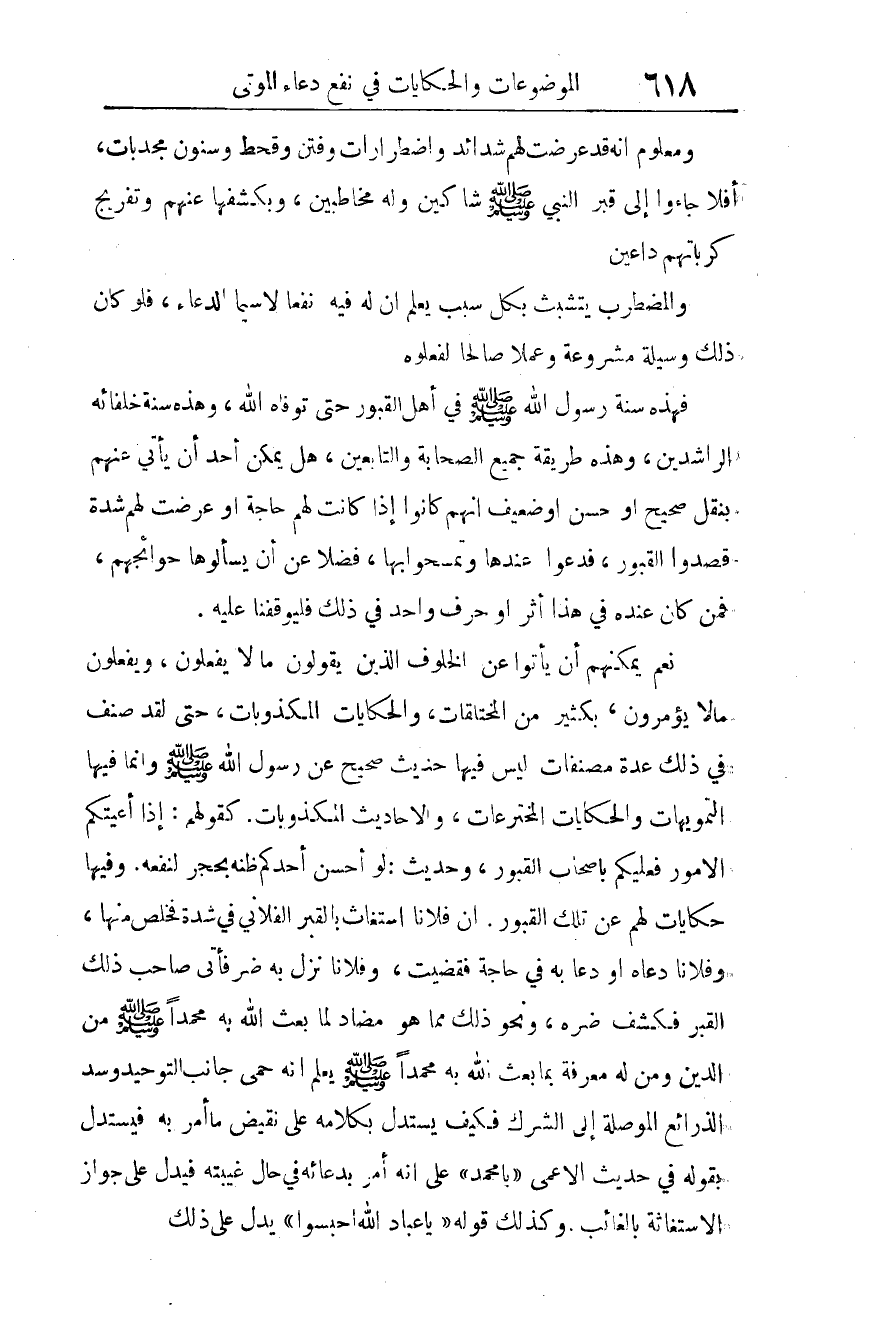 ٦١٨ الموضوعات والحكايات في نفع دعاء الموتى
ومعلوم انه قد عرضت لهم شدائد واضطرارات وفتن وقحط وسنون مجدبات،
أفلا جاءوا إلى قبر النبي ﷺ شاكين وله مخاطبين، وبكشفها عنهم وتفريج
كرباتهم داعين
والمضطرب يتشبث بكل سبب يعلم ان له فيه نفعا لاسيما الدعاء، فلو كان
ذلك وسيلة مشروعة وعملا صالحا لفعلوه
فهذه سنة رسول الله ﷺ في أهل القبور حتى توفاه الله، وهذه سنة خلفائه
الراشدين، وهذه طريقة جميع الصحابة والتابعين، هل يمكن أحد أن يأتي عنهم
بنقل صحيح او حسن او ضعيف انهم كانوا إذا كانت لهم حاجة او عرضت لهم شدة
قصدوا القبور، فدعوا عندها وتمسحوا بها، فضلا عن أن يسألوها حوائجهم،
فمن كان عنده في هذا أثر او حرف واحد في ذلك فليوقفنا عليه.
نعم يمكنهم أن يأتوا عن الخلوف الذين يقولون مالا يفعلون، ويفعلون
مالا يؤمرون، بكثير من المختلقات، والحكايات المكذوبات، حتى لقد صنف
في ذلك عدة مصنفات ليس فيها حديث صحيح عن رسول الله ﷺ وانما فيها
التمويهات والحكايات المخترعات، والاحاديث المكذوبات. كقولهم: إذا أعيتكم
الامور فعليكم باصحاب القبور، وحديث: لو أحسن أحدكم ظنه بحجر لنفعه. وفيها
حكايات لهم عن تلك القبور. ان فلانا استغاث بالقبر الفلاني في شدة فخلص منها،
وفلانا دعاه او دعا به في حاجة فقضيت، وفلانا نزل به ضر فأتى صاحب ذلك
القبر فكشف ضره، ونحو ذلك مما هو مضاد لما بعث الله به محمداً ﷺ من
الدين ومن له معرفة بما بعث الله به محمداً ﷺ يعلم انه حمى جانب التوحيد وسد
الذرائع الموصلة إلى الشرك فكيف يستدل بكلامه على نقيض ما أمر به فيستدل
بقوله في حديث الاعمى «يامحمد» على انه أمر بدعائه في حال غيبته فيدل على جواز
الاستغاثة بالغائب. وكذلك قوله «ياعباد الله احبسوا» يدل على ذلك